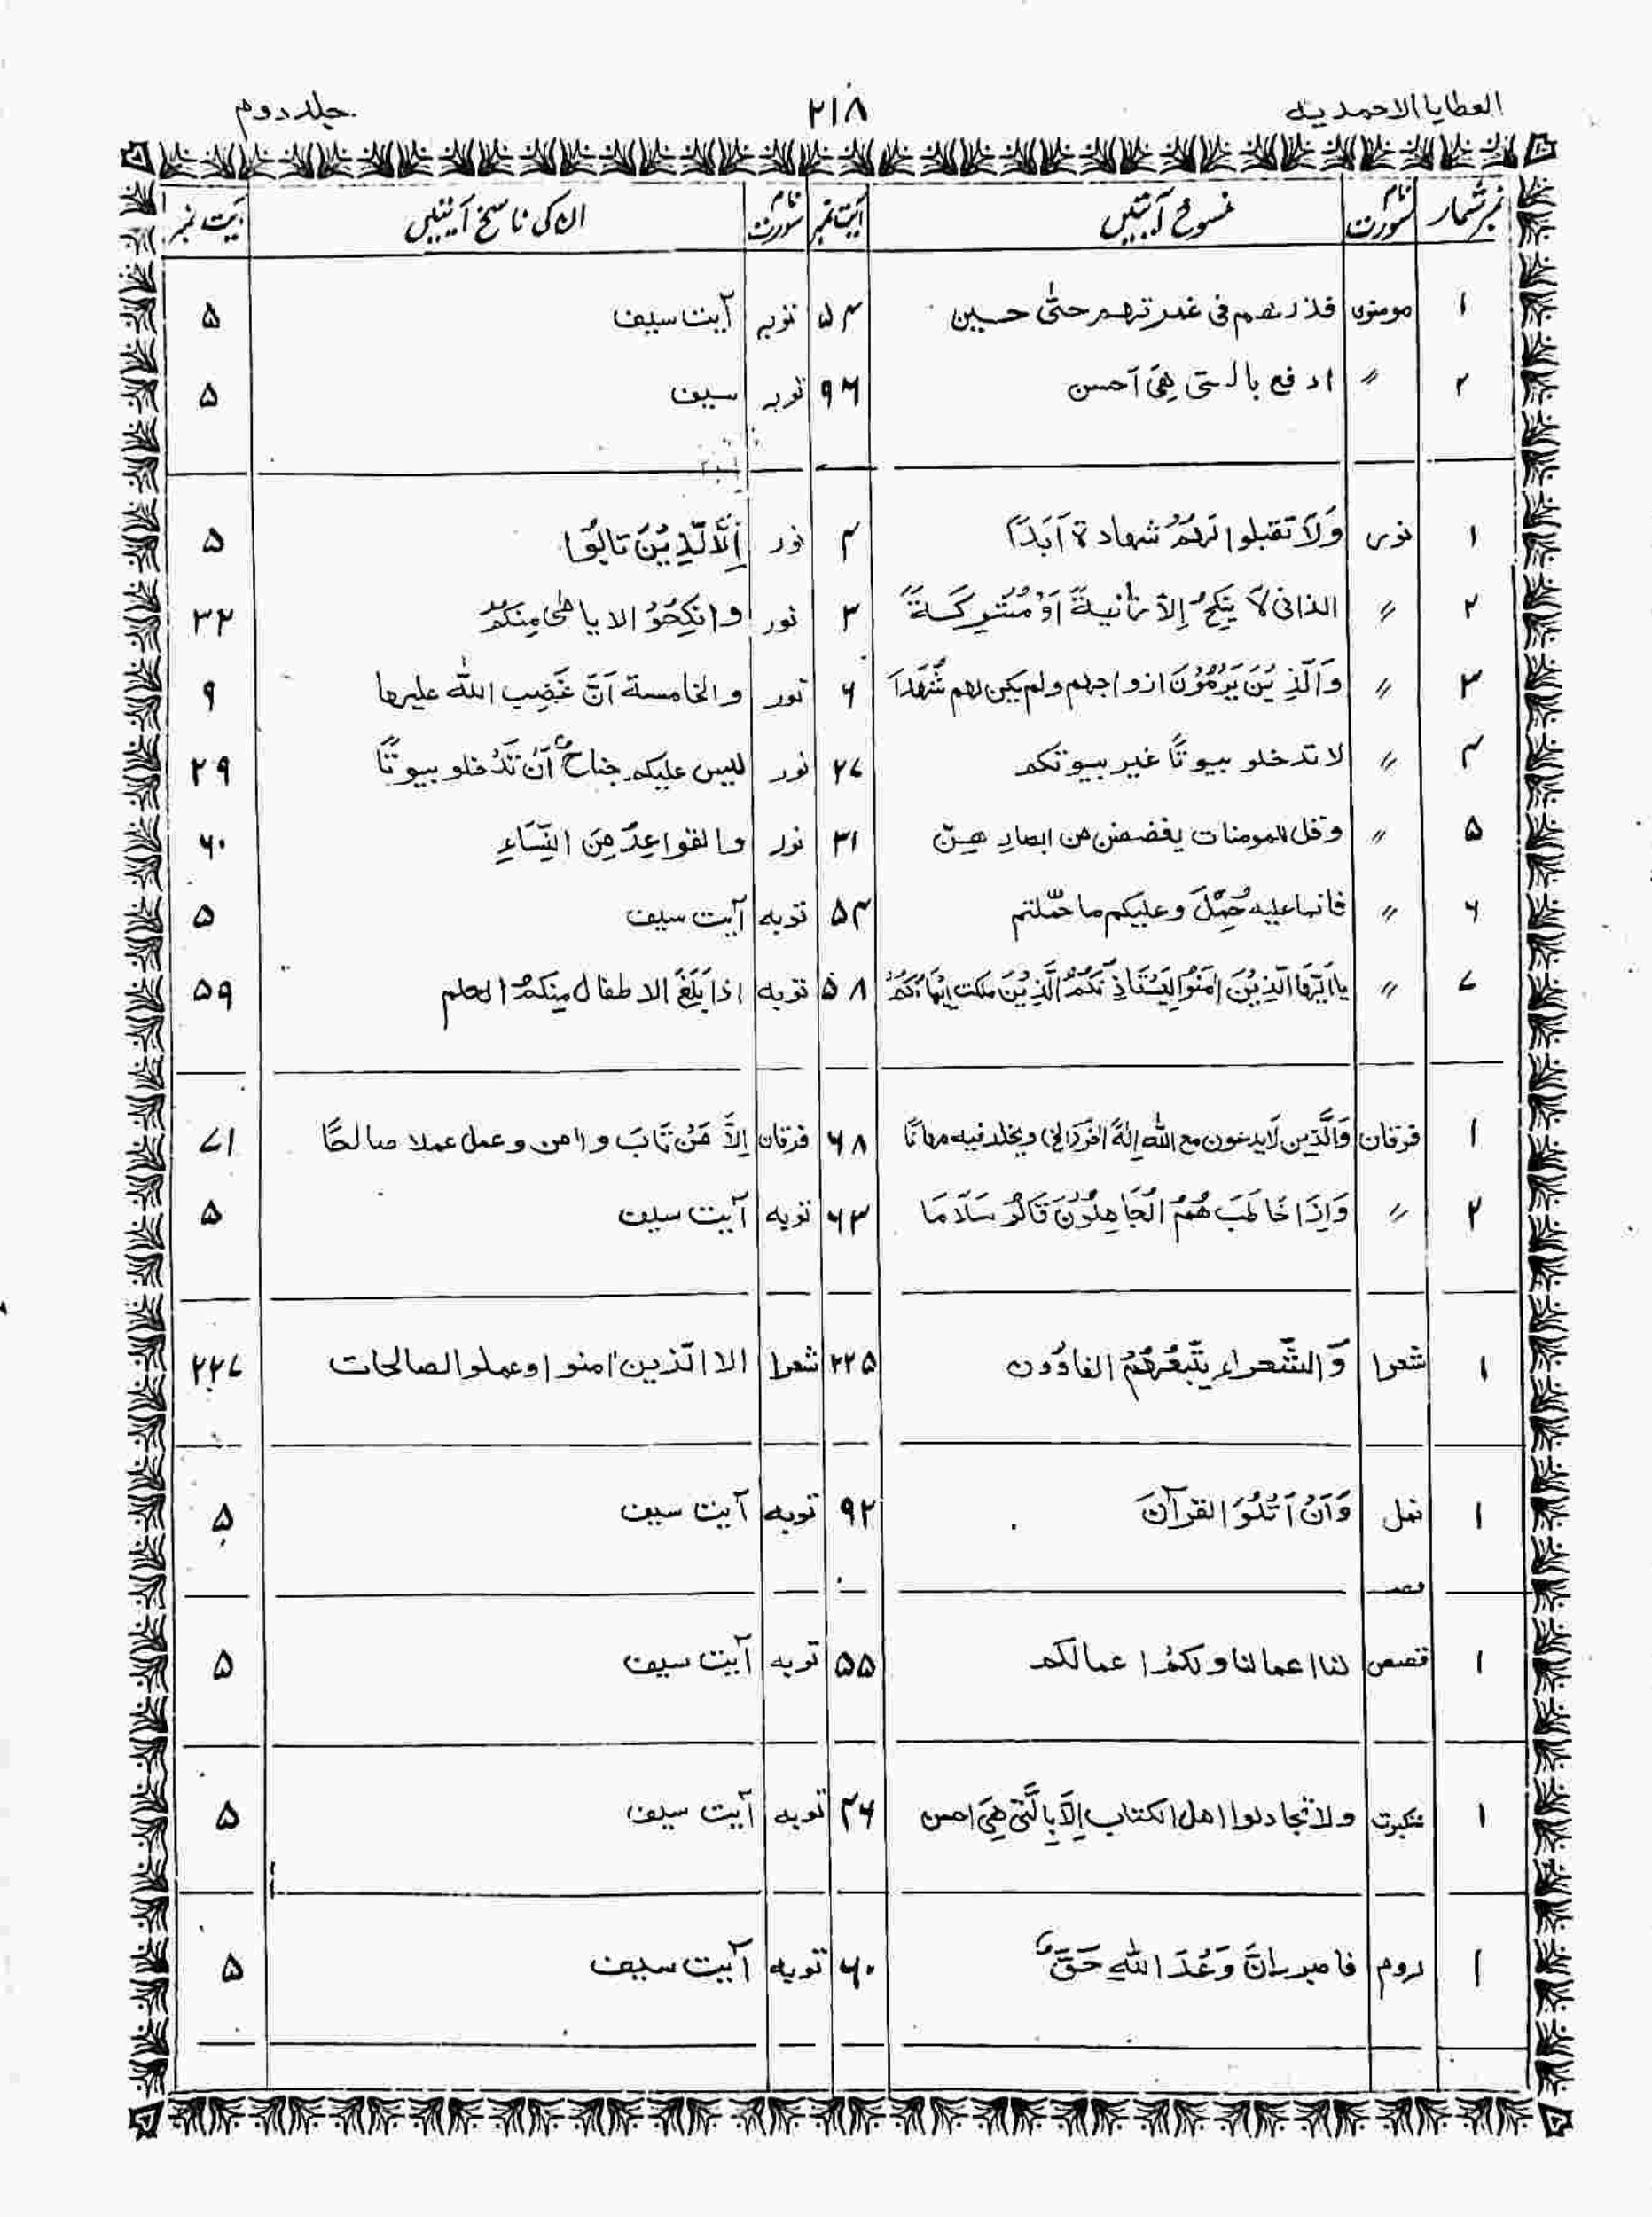 العطایا الاحمدیہ ۲۱۸ جلد دوم
نمبر شمار نام سورت منسوخ آیتیں آیت نمبر نام سورت ان کی ناسخ آیتیں آیت نمبر
۱ مومنون فذرھم فی غمرتھم حتّٰی حین ۵۴ توبہ آیت سیف ۵
۲ 〃 ادفع بالتی ھِیَ اَحسن ۹۶ توبہ سیف ۵
۱ نور وَلَا تقبلوا لَھُمْ شھادۃ اَبَدًا ۴ نور اِلَّا الَّذِیْنَ تَابُوْا ۵
۲ 〃 الذانی لَا یَنْکِحُ اِلَّا زانیۃً اَوْ مُشْرِکَۃً ۳ نور وانکِحُوْ الایامٰی مِنکُمْ ۳۲
۳ 〃 وَالَّذِیْنَ یَرْمُوْنَ ازواجھم ولم یکن لھم شُھَدَا ۶ نور والخامسۃ اَنَّ غَضِب اللّٰہ علیھا ۹
۴ 〃 لا تدخلو بیوتًا غیر بیوتکم ۲۷ نور لیس علیکم جناحٌ اَنْ تَدْخلو بیوتًا ۲۹
۵ 〃 وقل للمومنات یغضضن من ابصارِ ھِنّ ۳۱ نور والقواعِدُ مِنَ النِّسَاءِ ۶۰
۶ 〃 فانما علیہ حُمِّلَ وعلیکم ما حُمّلتم ۵۴ توبہ آیت سیف ۵
۷ 〃 یا اَیُّھَا الَّذِیْنَ اٰمَنُوْ الِیَسْتَاذِنَکُمْ الَّذِیْنَ ملکت اَیْمَانُکُمْ ۵۸ توبہ اذا بَلَغَ الاطفال مِنکُمْ الحلم ۵۹
۱ فرقان وَالَّذِین لَا یدعون مع اللّٰہ اِلٰہًا اٰخَرَ (الخ) ویخلد فیہ مھانًا ۶۸ فرقان اِلَّا مَنْ تَابَ واٰمن وعمل عملا صالحًا ۷۱
۲ 〃 وَاِذَا خَاطَبَ ھُمُ الْجَاھِلُوْنَ قَالُوْ سَلَامَا ۶۳ توبہ آیت سیف ۵
۱ شعرا وَالشُّعراء یتَّبِعُھُمُ الغاوٗون ۲۲۵ شعرا الا الّذین اٰمنو اوعملوالصالحات ۲۲۷
۱ نمل وَاَنْ اَتْلُوَ القرآنَ ۹۲ توبہ آیت سیف ۵
۱ قصص لنا اعمالنا ولکمْ اعمالکم ۵۵ توبہ آیت سیف ۵
۱ عنکبوت ولا تجادلوا اھل الکتاب اِلَّا بِالَّتِیْ ھِیَ احسن ۴۶ توبہ آیت سیف ۵
۱ روم فاصبر اِنَّ وَعْدَ اللّٰہِ حَقٌّ ۶۰ توبہ آیت سیف ۵